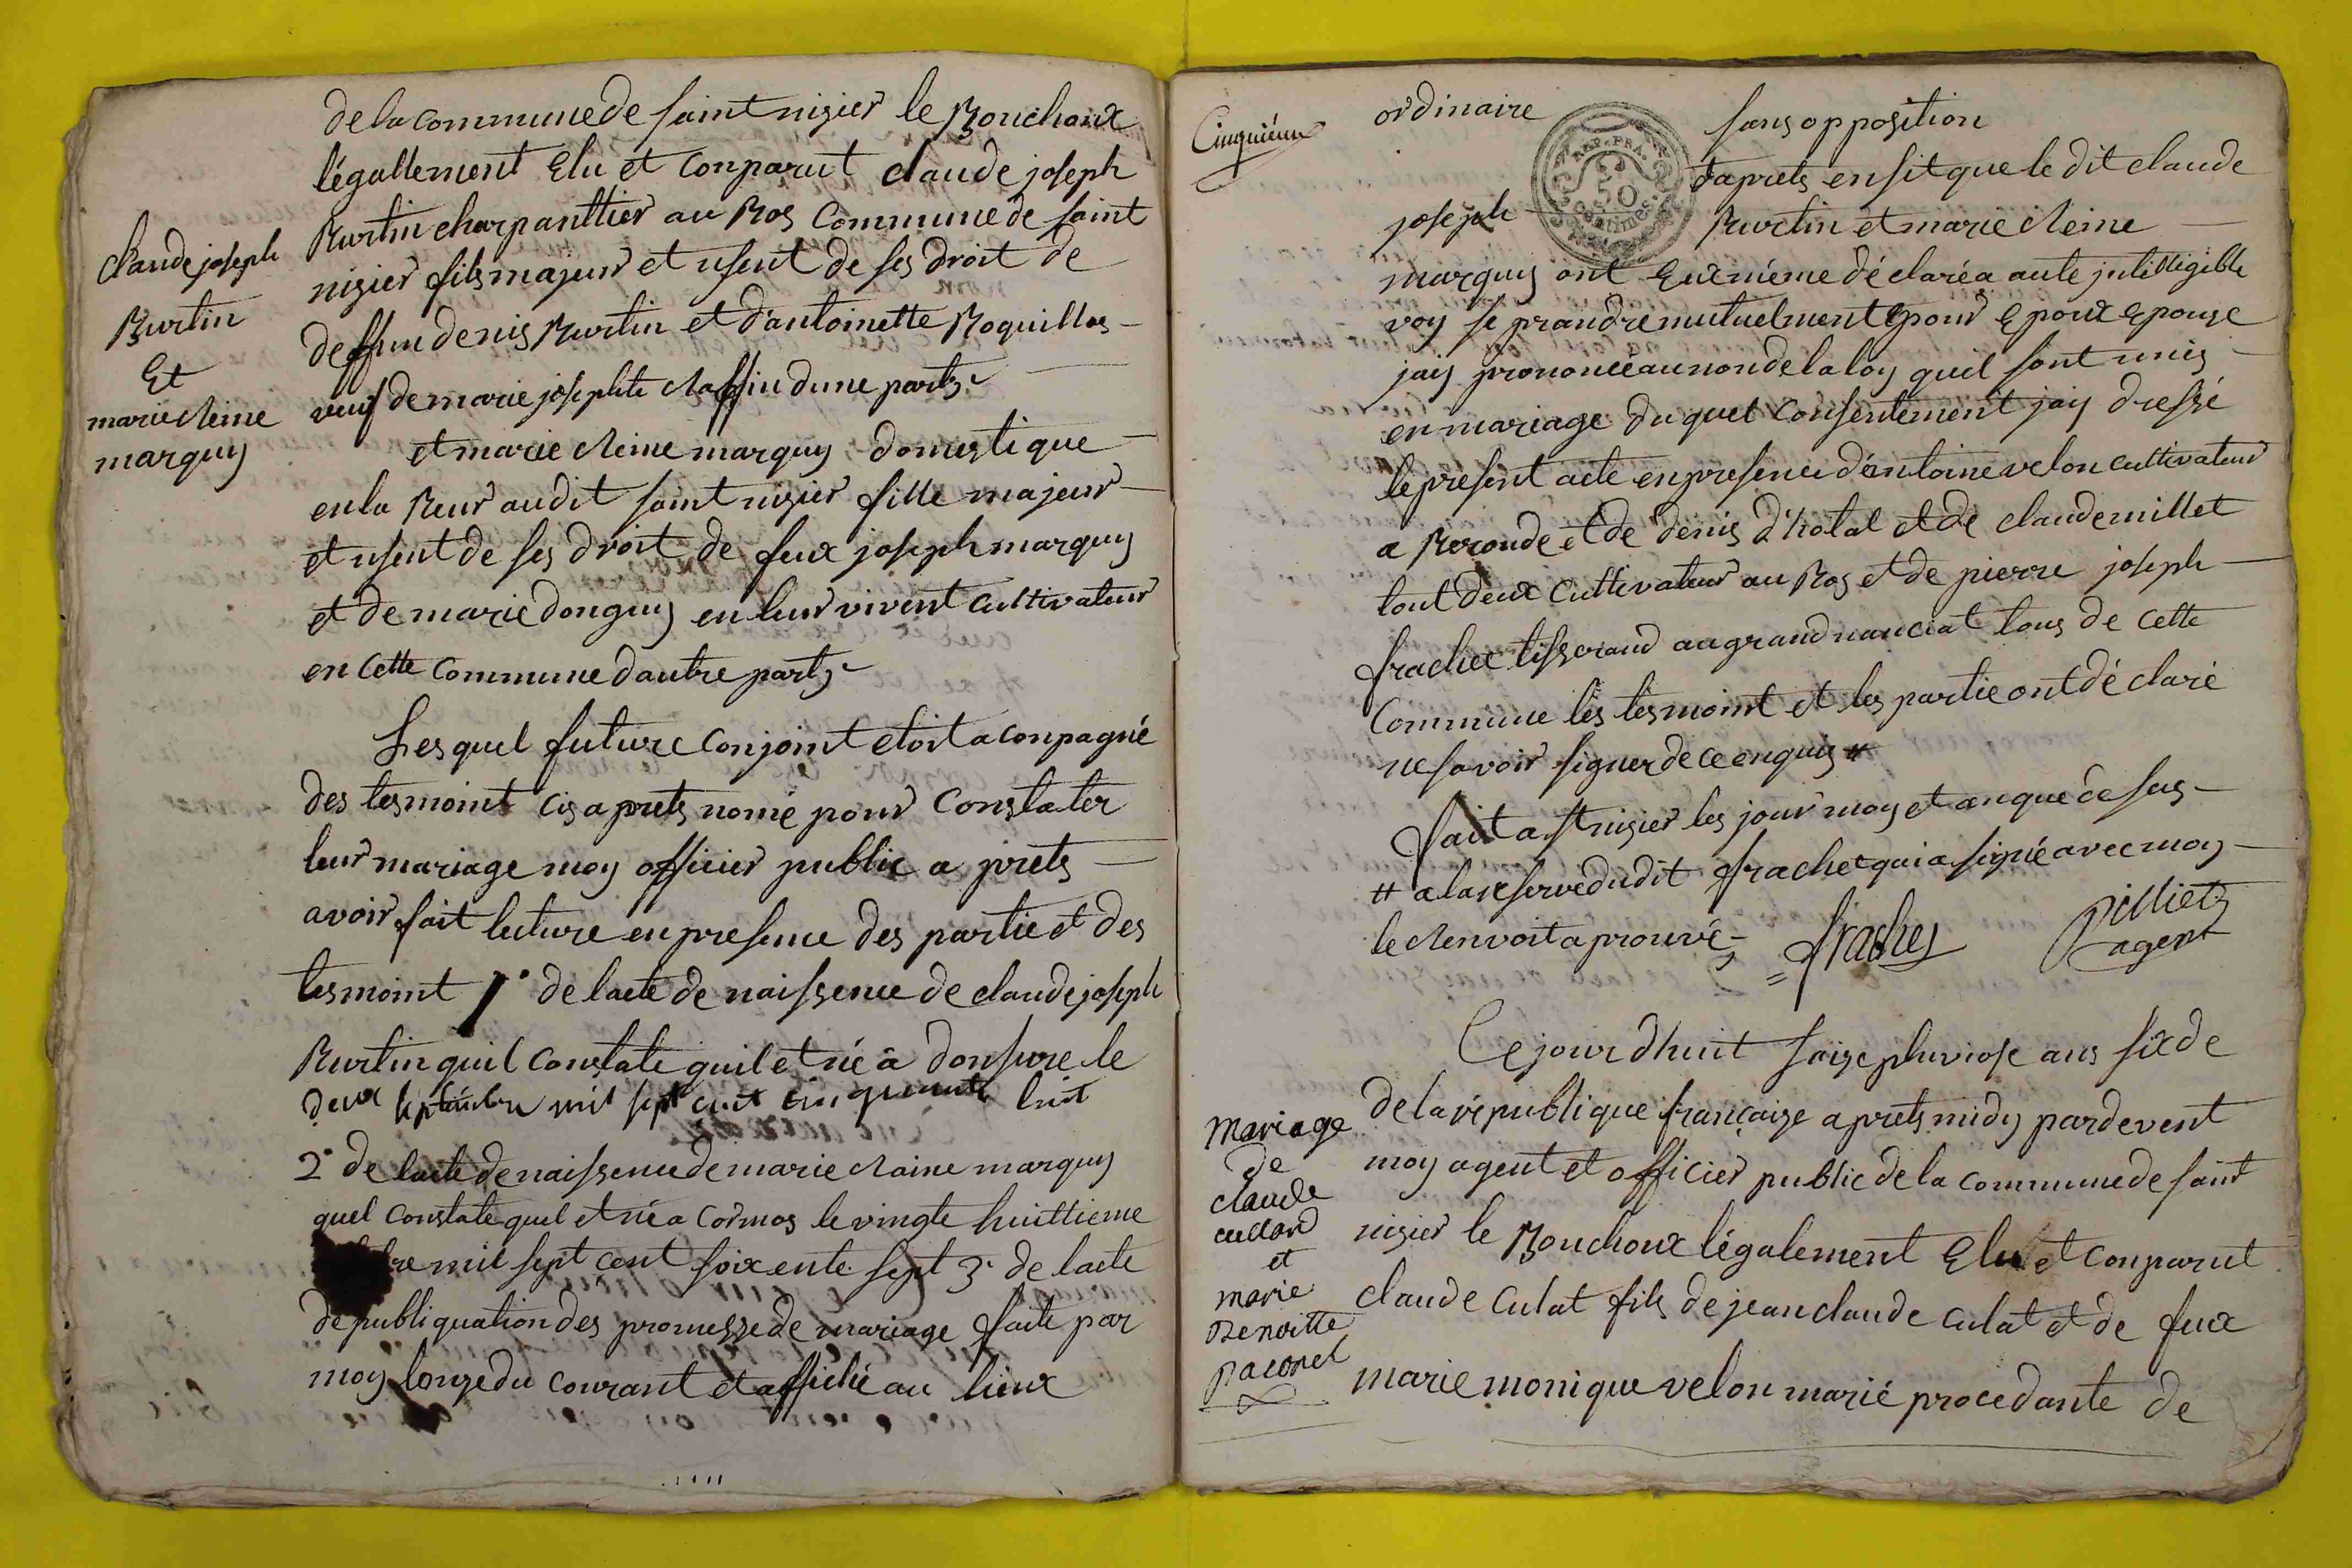 de la commune de saint nisier le Bouchoux
légallement Elu et conparut claude joseph
Burtin charpanttier au Bos commune de saint
nisier fils majeur et usent de ses droit de
deffun denis Burtin et d'antoinette Roquillas
veuf de marie josephte Chaffin dune part
et marie Reine marquy domestique
en la Beur audit saint nisier fille majeur
et usent de ses droit de feux joseph marquy
et de marie donguy en leur vivent cultivateur
en cette commune dautre part
Lesquel future conjoint etoit aconpagné
des tesmoint cy aprets nomé pour constater
leur mariage moy officier public a prets
avoir fait lecture en presence des partie et des
tesmoint 1° de lacte de naissence de claude joseph
Burtin quil constate quil et né a donsure le
deux septembre mil sept cent cinquante huit
2° de lacte de naissence de marie Raine marquy
quel constate quel et né a cormos le vingte huittieme
re mil sept cent soixente sept 3° de lacte
de publiquation des promesse de mariage faite par
moy lonze du courant et affiché au lieux
claude joseph
Burtin
Et
marie Reine
marquy
Cinquiéme
ordinaire sans opposition
REP. FRA. 50 centimes.
daprets ensit que le dit claude
joseph Burtin et marie Reine
marquy ont Eux méme déclaré a aute intelligible
voy se prandre mutuelment pour Epoux Epouse
jay prononcé au non de la loy quil sont unis
en mariage duquel consentement jay dressé
le présent acte en presence d'antoine velon cultivateur
a Beronde et de denis d'holat et de claude millet
tout deux cultivateur au Bos et de pierre joseph
frachet tisserand au grand nanciat tous de cette
commune les tesmoint et les partie ont déclaré
ne savoir signer de ce enquis #
fait a st nisier les jour moy et an que de sus
# a la reserve dudit frachet qui a signé avec moy
le Renvoit aprouvé
frachet
Pilliet
agent
Ce jour d'huit saize pluviose ans six de
de la république française aprets midy pardevent
moy agent et officier public de la commune de saint
nisier le Bouchoux légalement Elu et conparut
claude Culat fils de jean claude culat et de feux
marie monique velon marié procedante de
Mariage
de
claude
cullard
et
marie
Benoitte
paconet